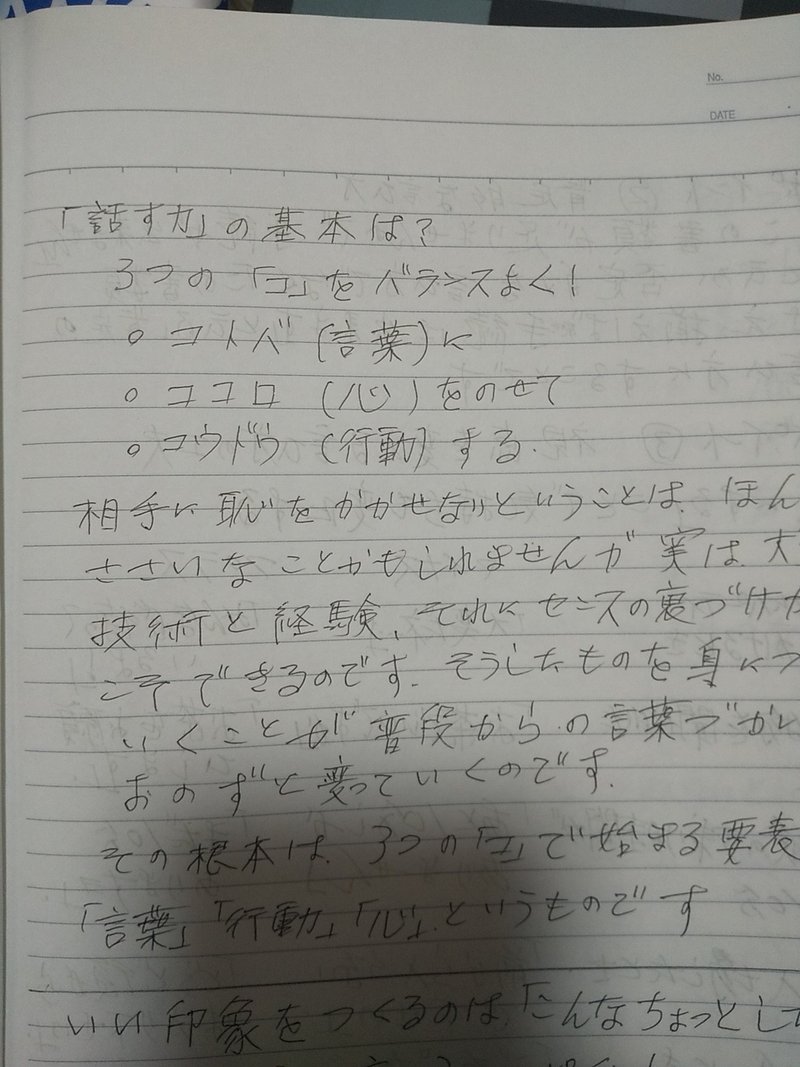 No.
DATE
「話す力」の基本は?
3つの「コ」をバランスよく!
○ コトバ (言葉) に
○ ココロ (心) をのせて
○ コウドウ (行動) する.
相手に恥をかかせないということは、ほん
ささいなことかもしれませんが実は、大
技術と経験、それにセンスの裏づけが
こそできるのです. そうしたものを身につ
いくことが普段からの言葉づかい
おのずと変っていくのです.
その根本は、3つの「コ」で始まる要表
「言葉」「行動」「心」というものです
いい印象をつくるのは、「こんなちょっとして